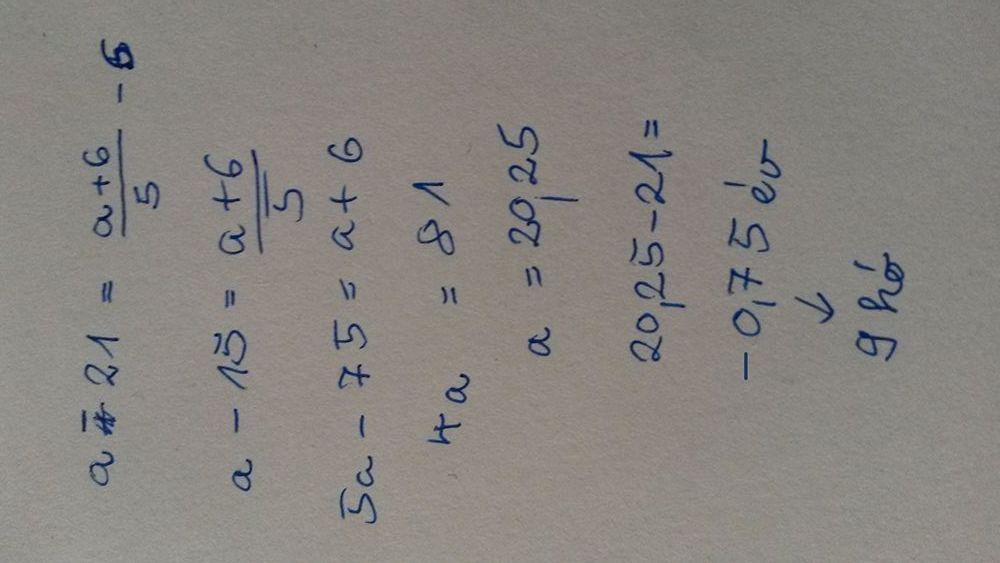 a - 21 = \frac{a+6}{5} - 6
a - 15 = \frac{a+6}{5}
5a - 75 = a + 6
4a = 81
a = 20,25
20,25 - 21 =
- 0,75 év
↓
9 hó